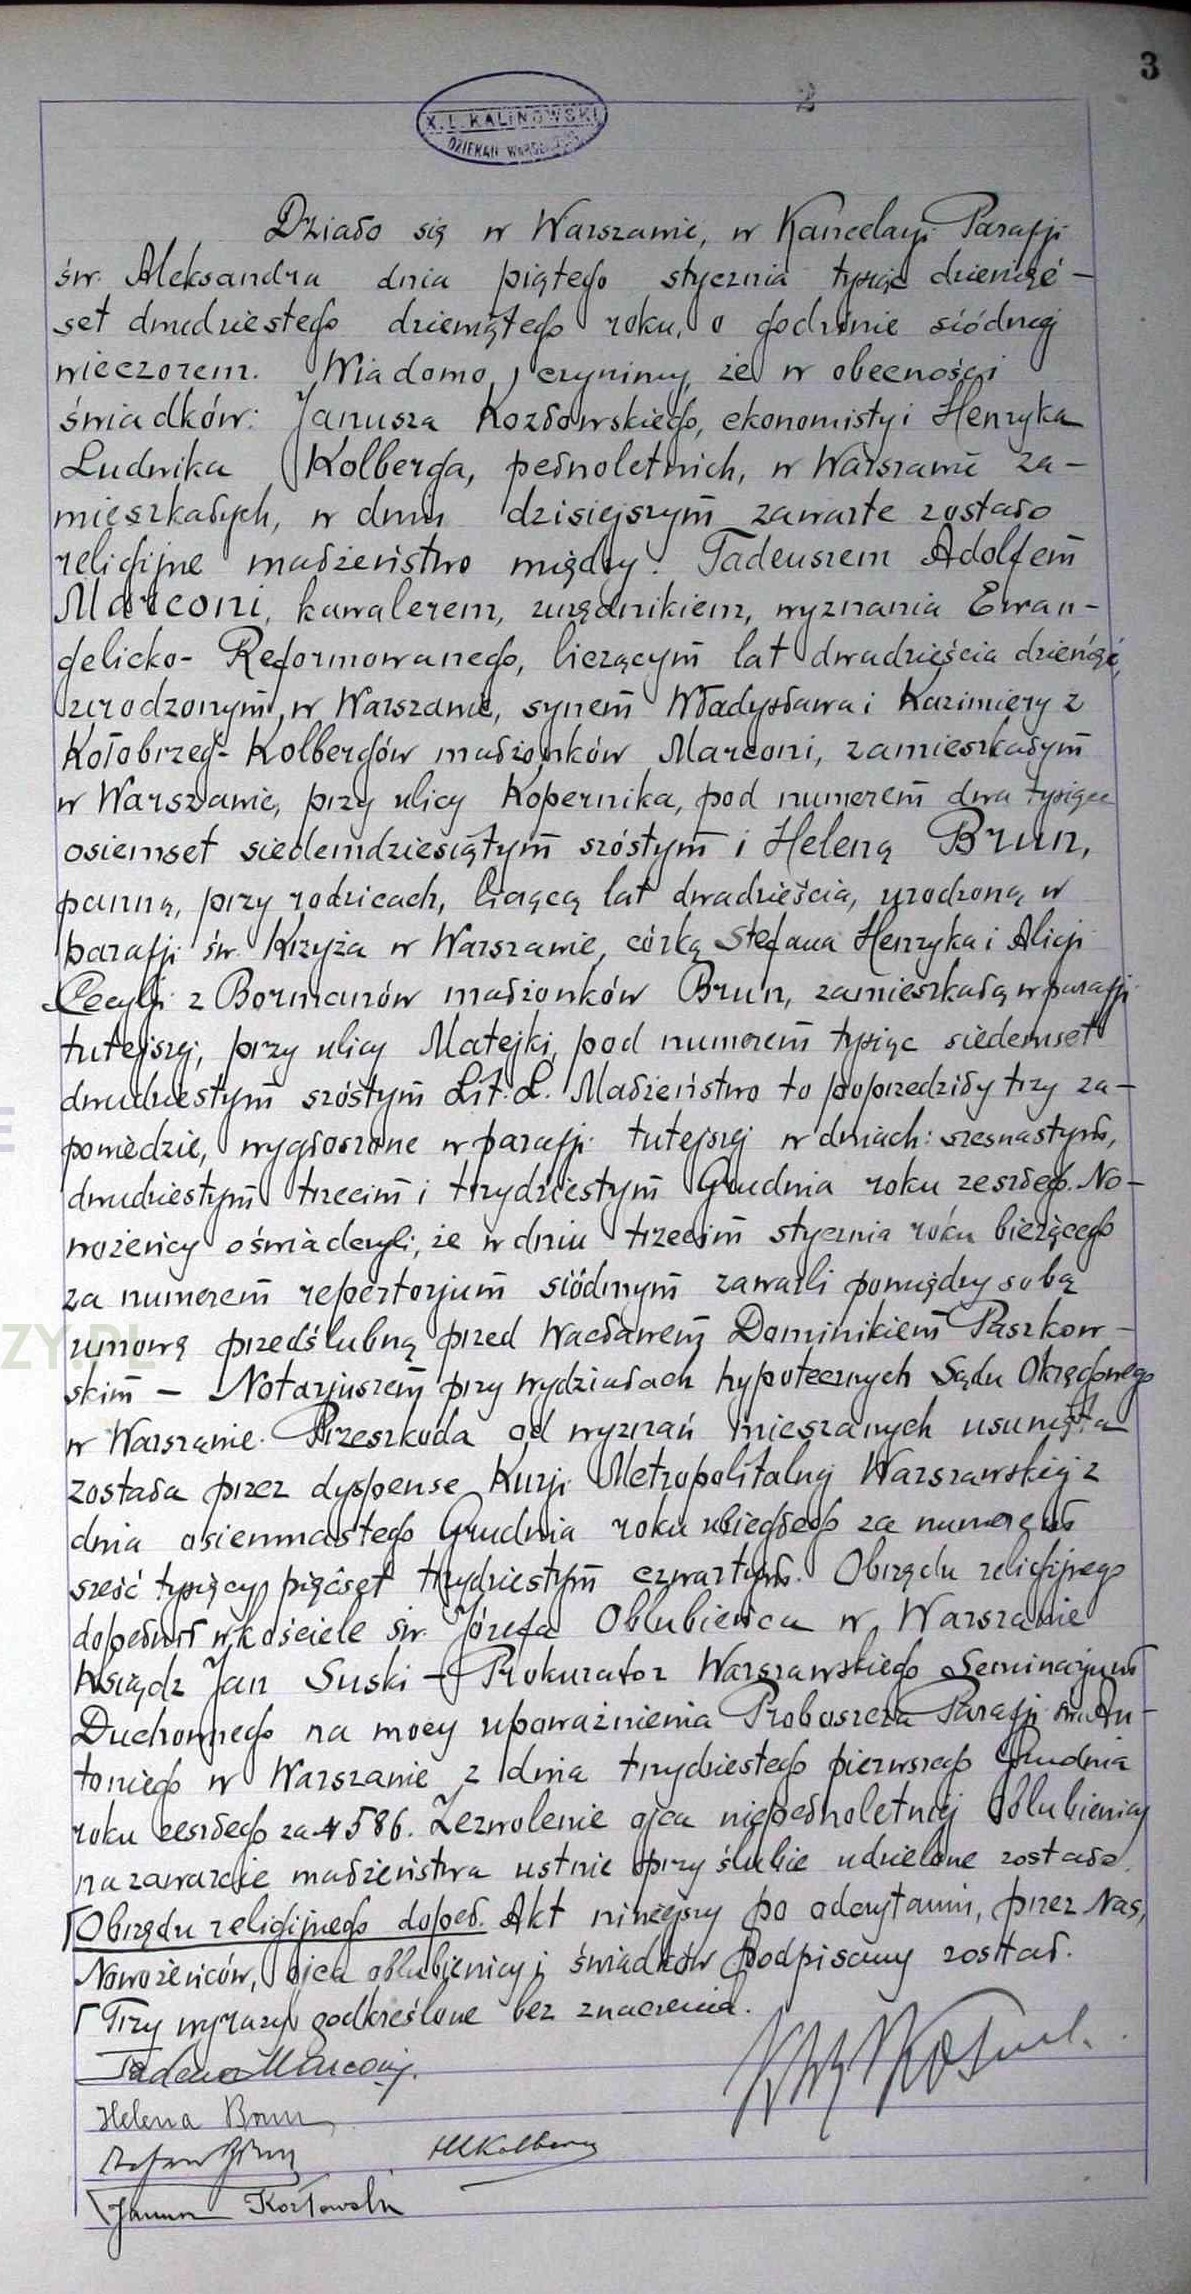 3
2
X. L. KALINOWSKI
DZIEKAN WARSZAWSKI
Działo się w Warszawie, w Kancelarji Parafji
św. Aleksandra dnia piątego stycznia tysiąc dziewięć-
set dwudziestego dziewiątego roku, o godzinie siódmej
wieczorem. Wiadomo czynimy, że w obecności
świadków: Janusza Kozłowskiego, ekonomisty i Henryka
Ludwika Kolberga, pełnoletnich, w Warszawie za-
mieszkałych, w dniu dzisiejszym zawarte zostało
religijne małżeństwo między: Tadeuszem Adolfem
Marconi, kawalerem, urzędnikiem, wyznania Ewan-
gelicko-Reformowanego, liczącym lat dwadzieścia dziewięć,
urodzonym w Warszawie, synem Władysława i Kazimiery z
Kołobrzeg-Kolbergów małżonków Marconi, zamieszkałym
w Warszawie, przy ulicy Kopernika, pod numerem dwa tysiące
osiemset siedemdziesiątym szóstym i Heleną Brun,
panną, przy rodzicach, liczącą lat dwadzieścia, urodzoną w
parafji św. Krzyża w Warszawie, córką Stefana Henryka i Alicji
Cecylji z Bormanów małżonków Brun, zamieszkałą w parafji
tutejszej, przy ulicy Matejki, pod numerem tysiąc siedemset
dwudziestym szóstym Lit. L. Małżeństwo to poprzedziły trzy za-
powiedzie, wygłoszone w parafji tutejszej w dniach: szesnastym,
dwudziestym trzecim i trzydziestym Grudnia roku zeszłego. No-
wożeńcy oświadczyli, że w dniu trzecim stycznia roku bieżącego
za numerem repertorjum siódmym zawarli pomiędzy sobą
umowę przedślubną przed Wacławem Dominikiem Paszkow-
skim – Notarjuszem przy wydziałach hypotecznych Sądu Okręgowego
w Warszawie. Przeszkoda od wyznań mieszanych usunięta
została przez dyspensę Kurji Metropolitalnej Warszawskiej z
dnia osiemnastego Grudnia roku ubiegłego za numerem
sześć tysięcy pięćset trzydziestym czwartym. Obrzędu religijnego
dopełnił w kościele św. Józefa Oblubieńca w Warszawie
Ksiądz Jan Suski – Prokurator Warszawskiego Seminarjum
Duchownego na mocy upoważnienia Proboszcza Parafji św. An-
toniego w Warszawie z dnia trzydziestego pierwszego Grudnia
roku zeszłego za № 586. Zezwolenie ojca niepełnoletniej Oblubienicy
na zawarcie małżeństwa ustnie przy ślubie udzielone zostało.
Obrzędu religijnego dopeł. Akt niniejszy po odczytaniu, przez Nas,
Nowożeńców, ojca oblubienicy i świadków podpisany został.
Trzy wyrazy podkreślone bez znaczenia.
Tadeusz Marconi.
Helena Brun
Stefan Brun
HLKolberg
Janusz Kozłowski